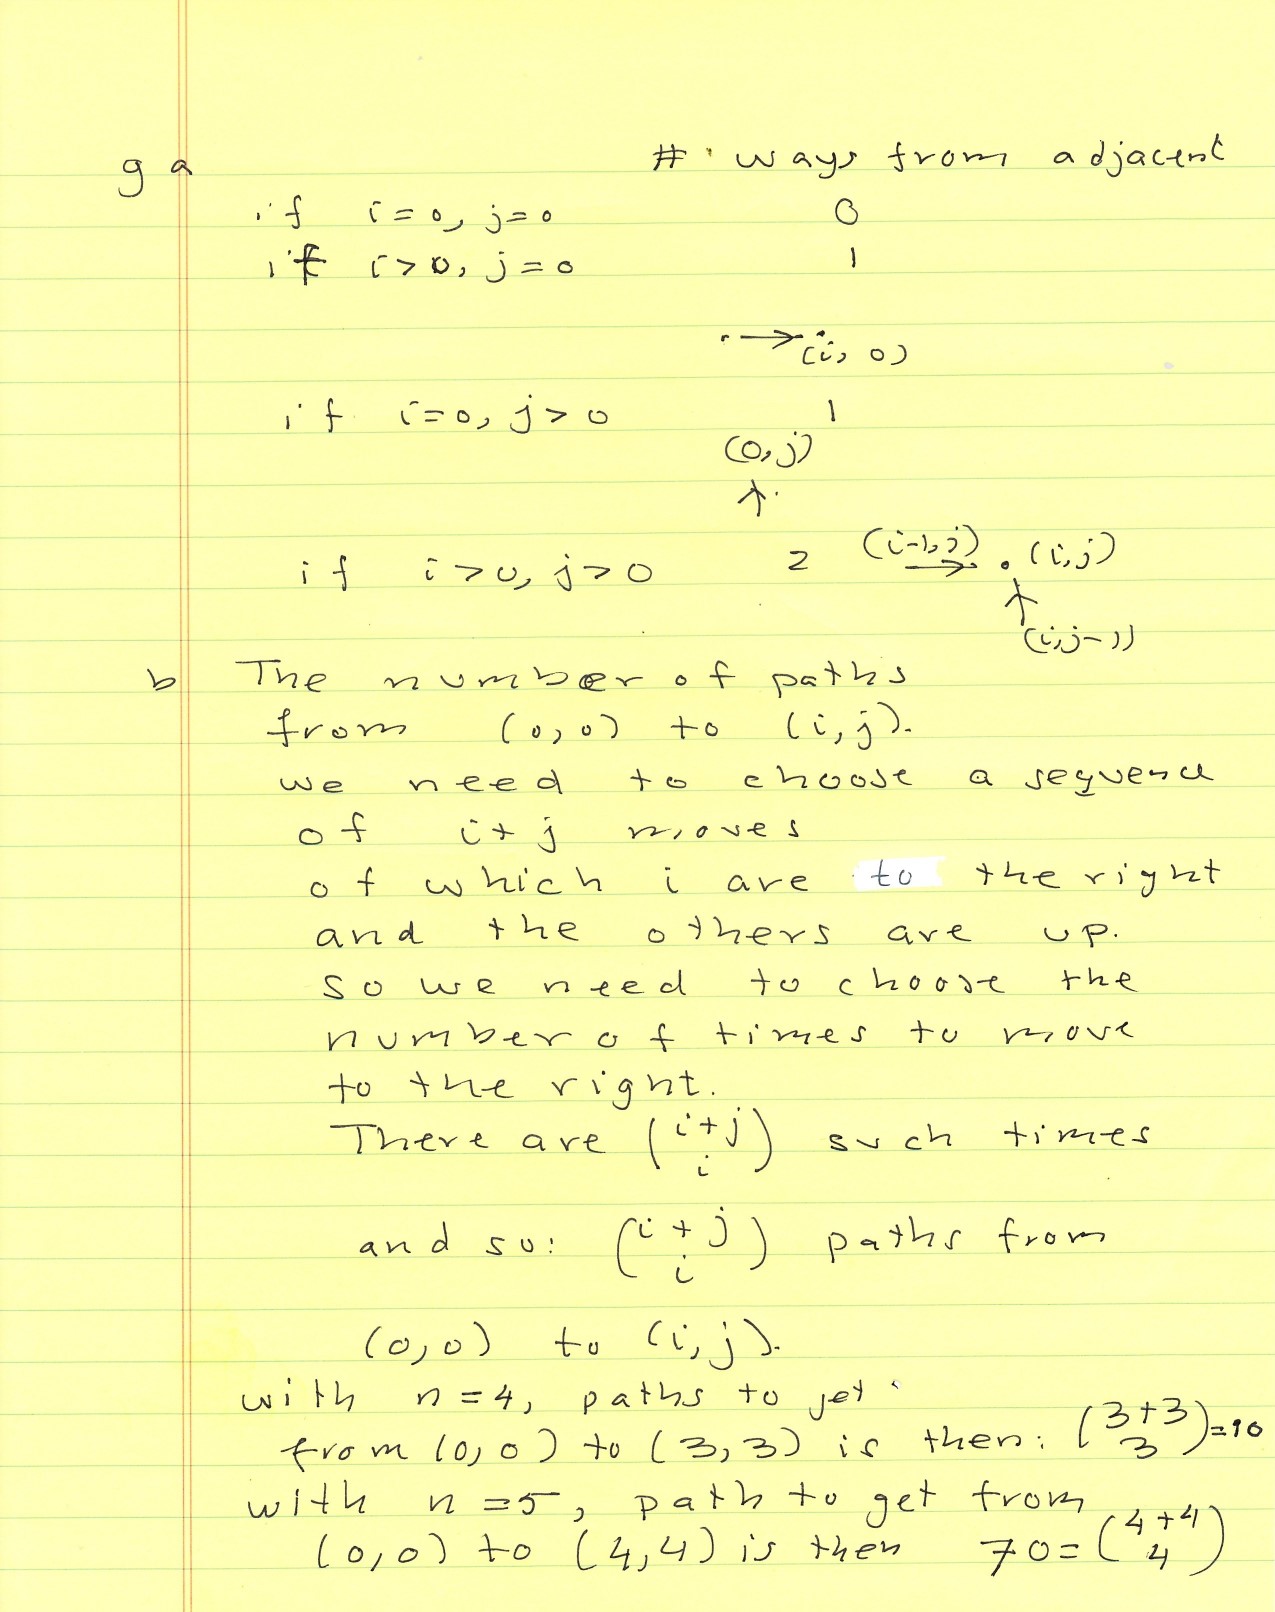 g a # ways from adjacent
if i=0, j=0 0
if i>0, j=0 1
→ (i, 0)
if i=0, j>0 1
(0,j)
↑
if i>0, j>0 2 (i-1,j) → . (i,j)
↑
(i,j-1)
b The number of paths
from (0,0) to (i,j).
we need to choose a sequence
of i+j moves
of which i are to the right
and the others are up.
so we need to choose the
number of times to move
to the right.
There are (i+j
i) such times
and so: (i+j
i) paths from
(0,0) to (i,j).
with n=4, paths to get
from (0,0) to (3,3) is then: (3+3
3)=10
with n=5, path to get from
(0,0) to (4,4) is then 70=(4+4
4)